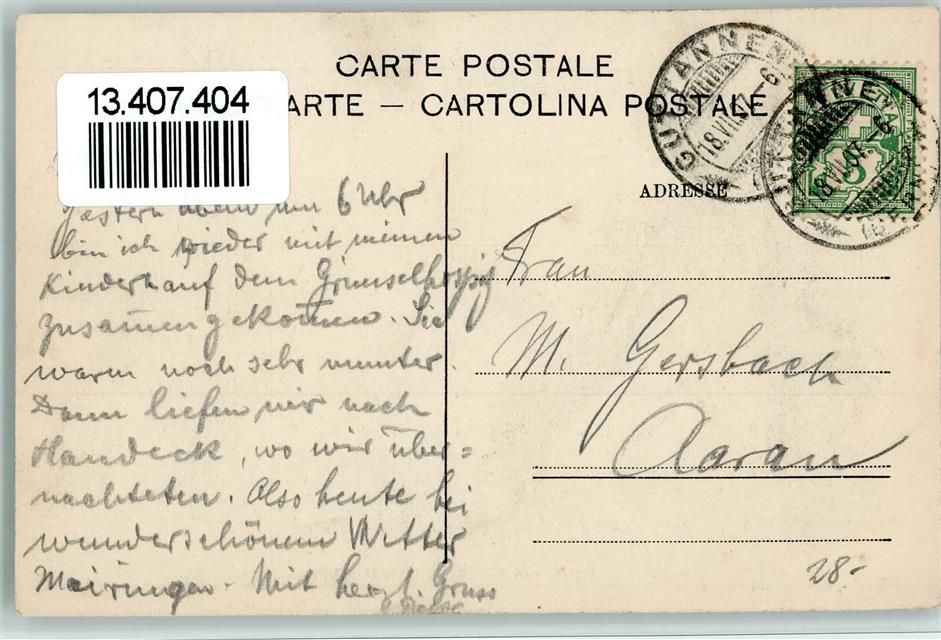 CARTE POSTALE
13.407.404
ARTE – CARTOLINA POSTALE
GUTTANNEN
18.VII.07.-6
GUTTANNEN
18.VII.07.-6
5
ADRESSE
Gestern abend um 6 Uhr
bin ich wieder mit meinen
Kindern auf dem Grimselhospiz
zusamengekomen. Sie
waren noch sehr munter.
Dann liefen wir nach
Handeck, wo wir über=
nachteten. Also heute bei
wunderschönem Wetter
Meiringen. Mit herzl. Gruss
Frau
M. Gersbach
Aarau
28.-